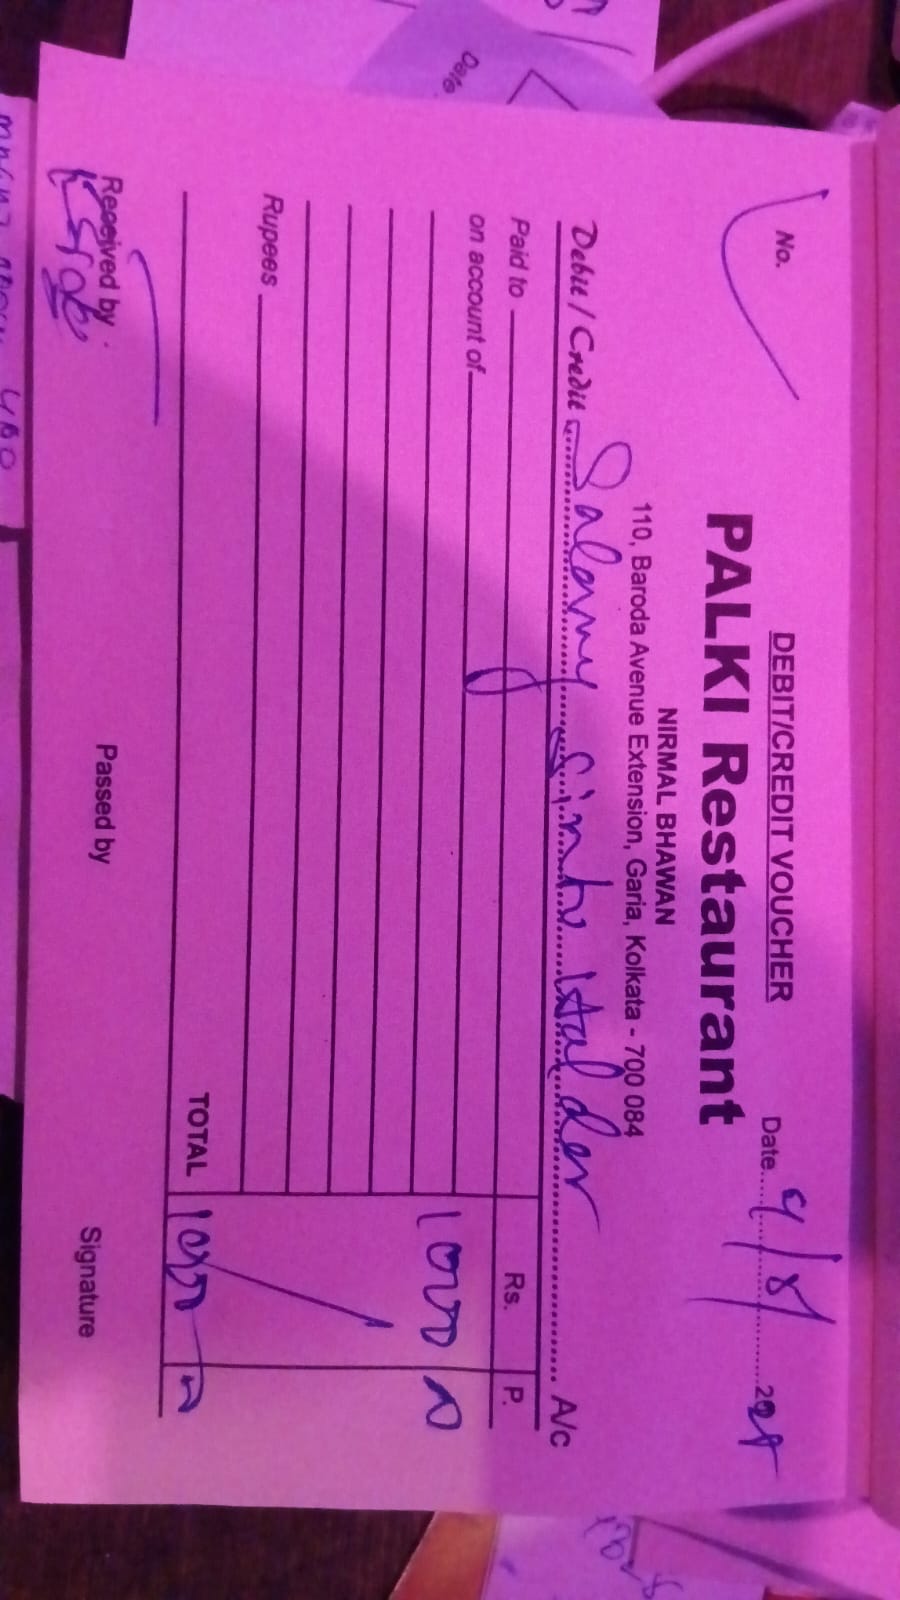 DEBIT/CREDIT VOUCHER
No.
Date
PALKI Restaurant
NIRMAL BHAWAN
110, Baroda Avenue Extension, Garia, Kolkata - 700 084
Debit / Credit Salary Sintu Halder A/c
Paid to Rs. P.
on account of
1000
Rupees
TOTAL 1000
Received by Passed by Signature
Date